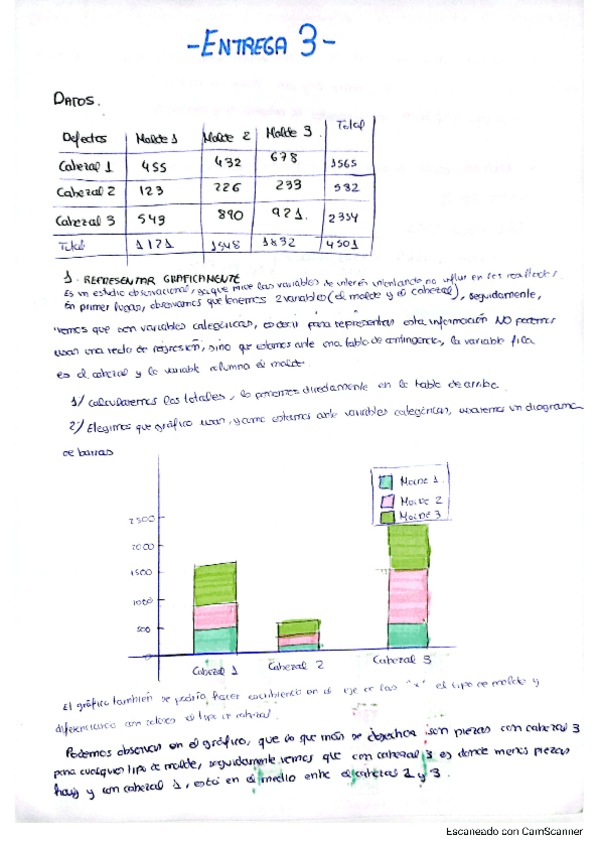 -ENTREGA 3-
DATOS.
Defectos Molde 1 Molde 2 Molde 3 Total
Cabezal 1 455 432 678 1565
Cabezal 2 123 226 233 582
Cabezal 3 543 890 921. 2354
Total 1121 1548 1832 4501
1. REPRESENTAR GRAFICAMENTE
Es un estudio observacional, ya que mide las variables de interés intentando no influir en los resultados.
En primer lugar, observamos que tenemos 2 variables (el molde y el cabezal), seguidamente,
vemos que son variables categóricas, es decir para representar esta información NO podemos
usar una recta de regresión, sino que estamos ante una tabla de contingencia, la variable fila
es el cabezal y la variable columna el molde.
1/ Calcularemos los totales, lo ponemos directamente en la tabla de arriba.
2/ Elegimos que gráfico usar, y como estamos ante variables categóricas, usaremos un diagrama
de barras
Molde 1
Molde 2
Molde 3
2500
2000
1500
1000
500
Cabezal 1 Cabezal 2 Cabezal 3
El gráfico también se podría hacer escribiendo en el eje de las "x" el tipo de molde y
diferenciando con colores el tipo de cabezal.
Podemos observar en el gráfico, que lo que más se desecha son piezas con cabezal 3
para cualquier tipo de molde, seguidamente vemos que con cabezal 3 es donde menos piezas
hay y con cabezal 1, está en el medio entre el cabezal 2 y 3.
Escaneado con CamScanner